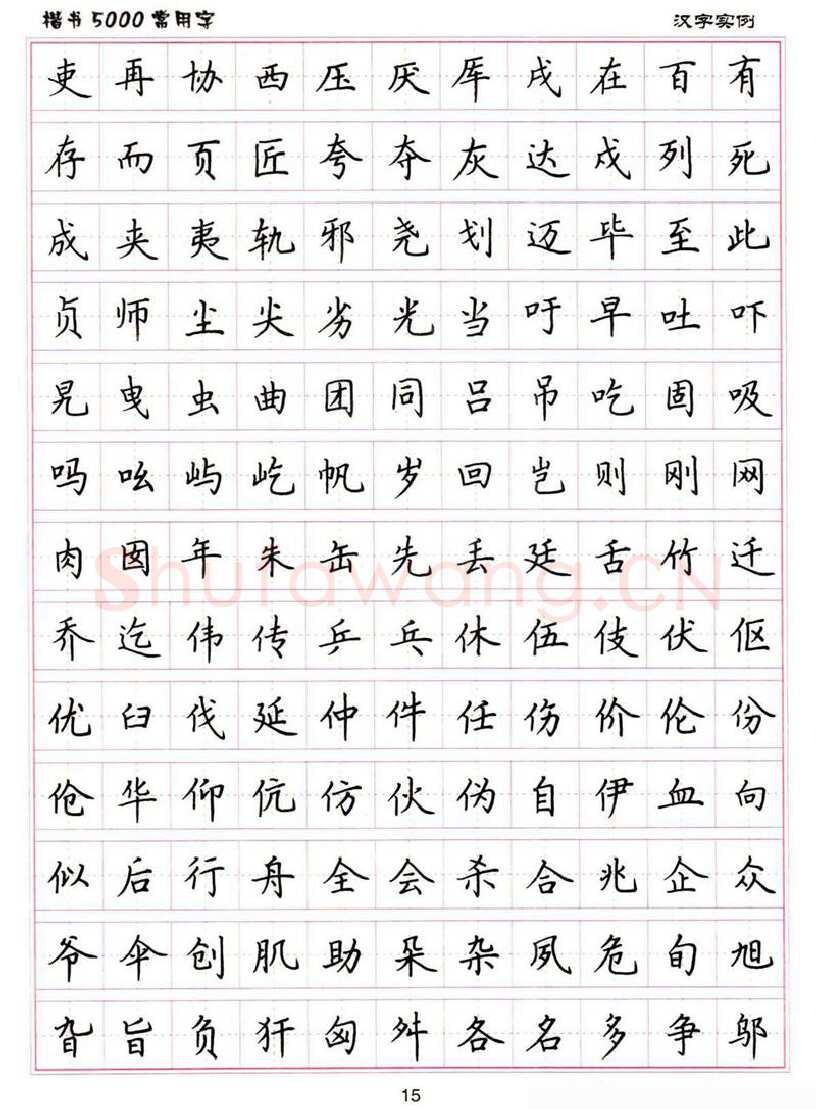 楷书5000常用字 汉字实例
吏再协西压厌厍戌在百有
存而页匠夸夺灰达戍列死
成夹夷轨邪尧划迈毕至此
贞师尘尖劣光当吁早吐吓
晃曳虫曲团同吕吊吃固吸
吗吆屿屹帆岁回岂则刚网
肉囡年朱缶先丢廷舌竹迁
乔迄伟传乒乓休伍伎伏伛
优臼伐延仲件任伤价伦份
伧华仰伉仿伙伪自伊血向
似后行舟全会杀合兆企众
爷伞创肌助朵杂夙危旬旭
旮旨负犴匈舛各名多争邬
Shufawang.CN
15